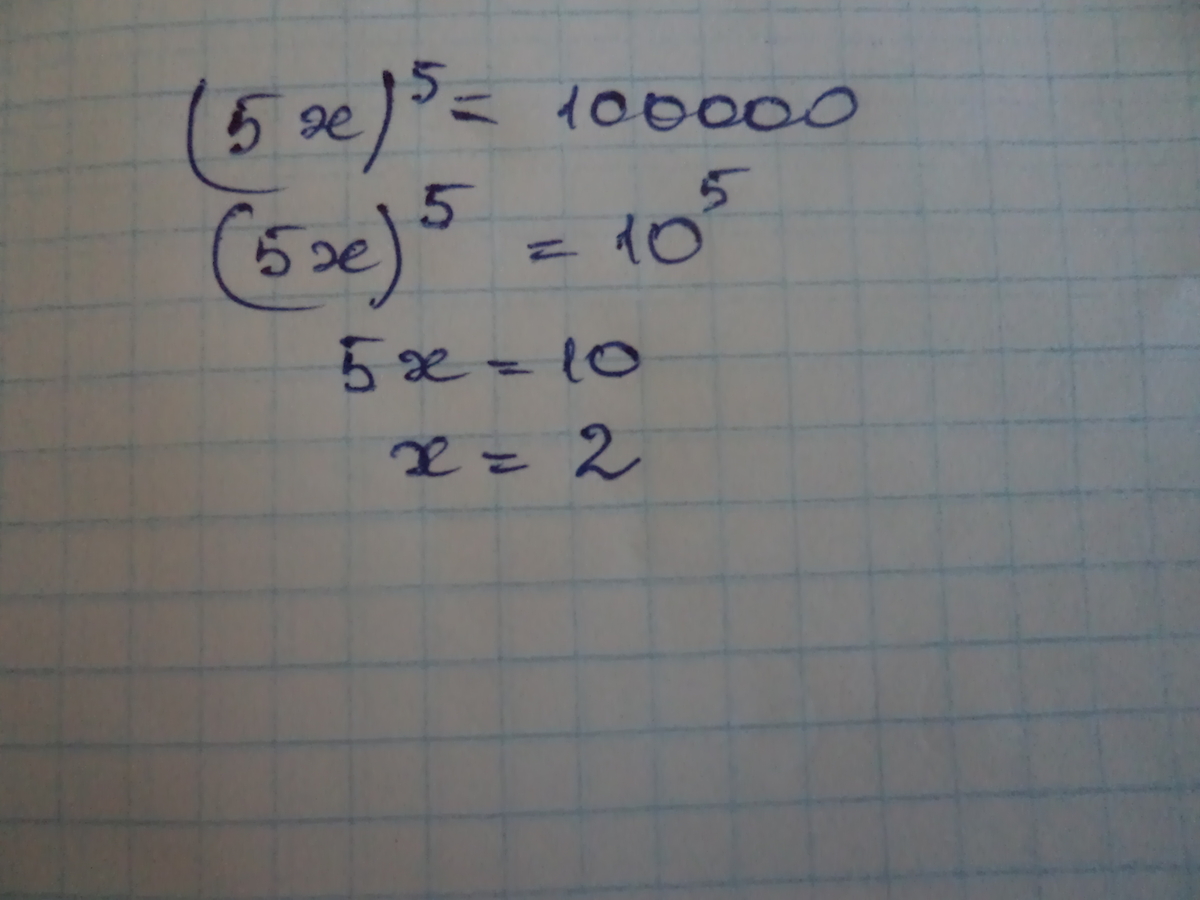 (5x)^5 = 100000
(5x)^5 = 10^5
5x = 10
x = 2